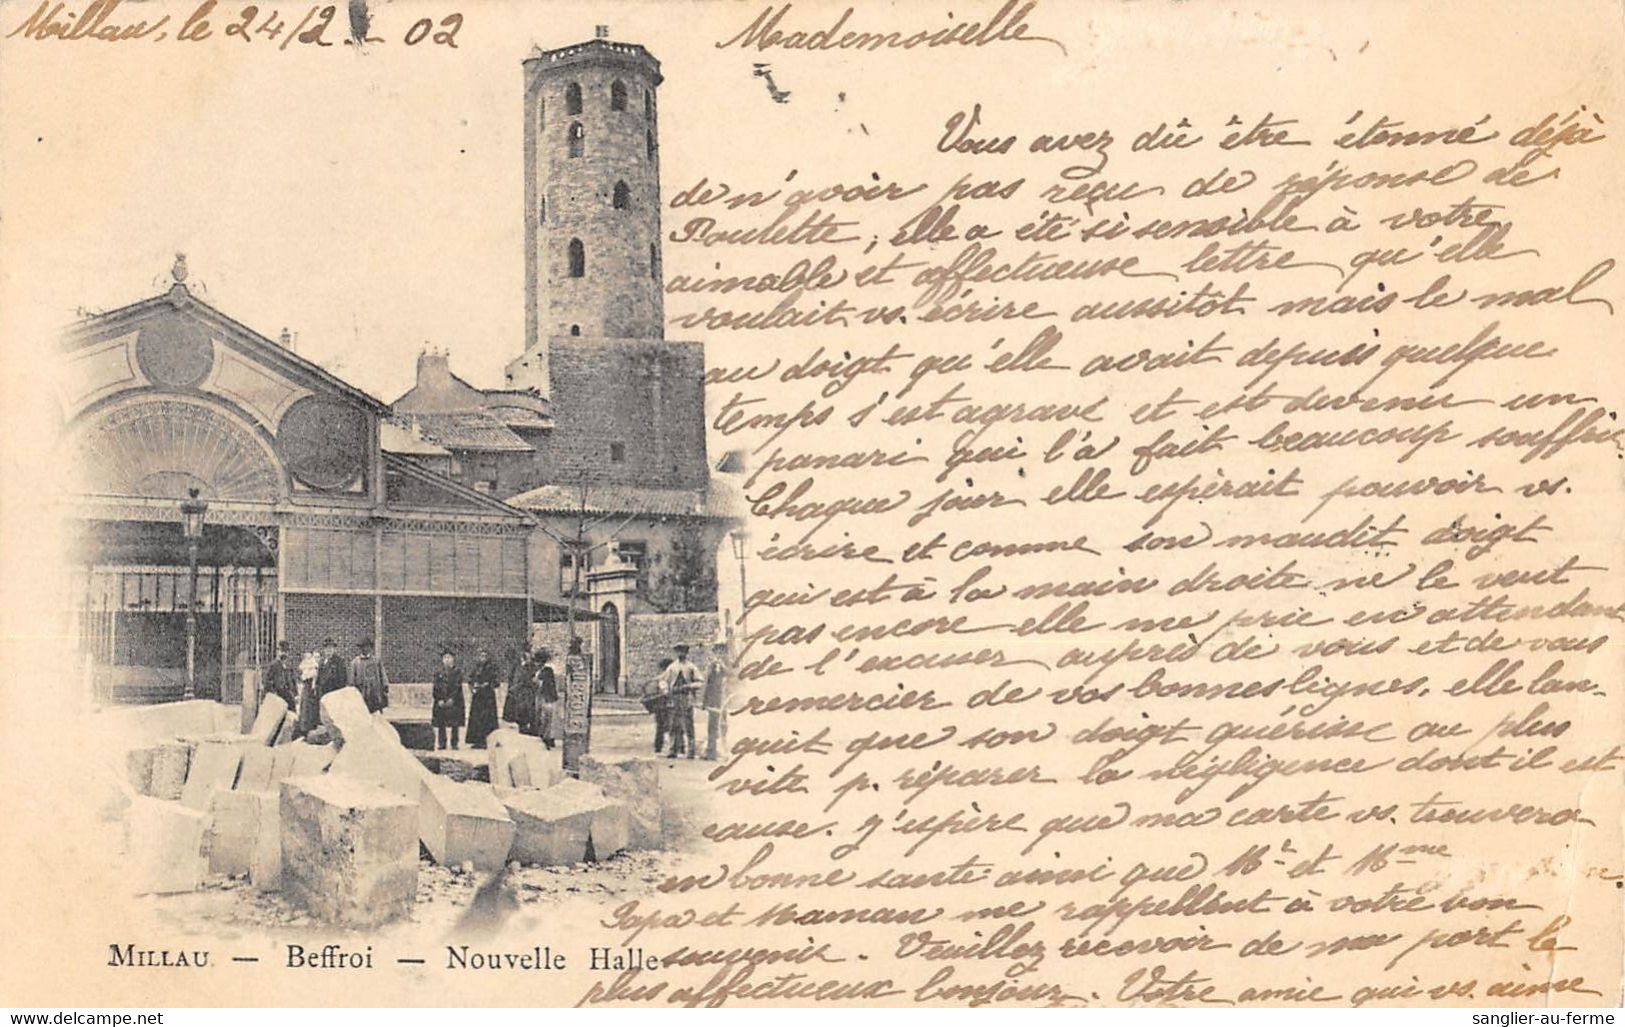 Millau, le 24/2 - 02
Mademoiselle
Vous avez dû être étonné déjà
de n'avoir pas reçu de réponse de
Poulette, elle a été si sensible à votre
aimable et affectueuse lettre qu'elle
voulait vs. écrire aussitôt mais le mal
au doigt qu'elle avait depuis quelque
temps s'est agravé et est devenu un
panari qui l'a fait beaucoup souffrir.
Chaque jour elle espérait pouvoir vs.
écrire et comme son maudit doigt
qui est à la main droite ne le veut
pas encore elle me prie en attendant
de l'excuser auprès de vous et de vous
remercier de vos bonnes lignes, elle lan-
guit que son doigt guérisse au plus
vite p. réparer la négligence dont il est
cause. J'espère que ma carte vs. trouvera
en bonne santé ainsi que Mr et Mme
Papa et Maman me rappellent à votre bon
souvenir. Veuillez recevoir de ma part le
plus affectueux bonjour. Votre amie qui vs. aime
MILLAU — Beffroi — Nouvelle Halle
sanglier-au-ferme